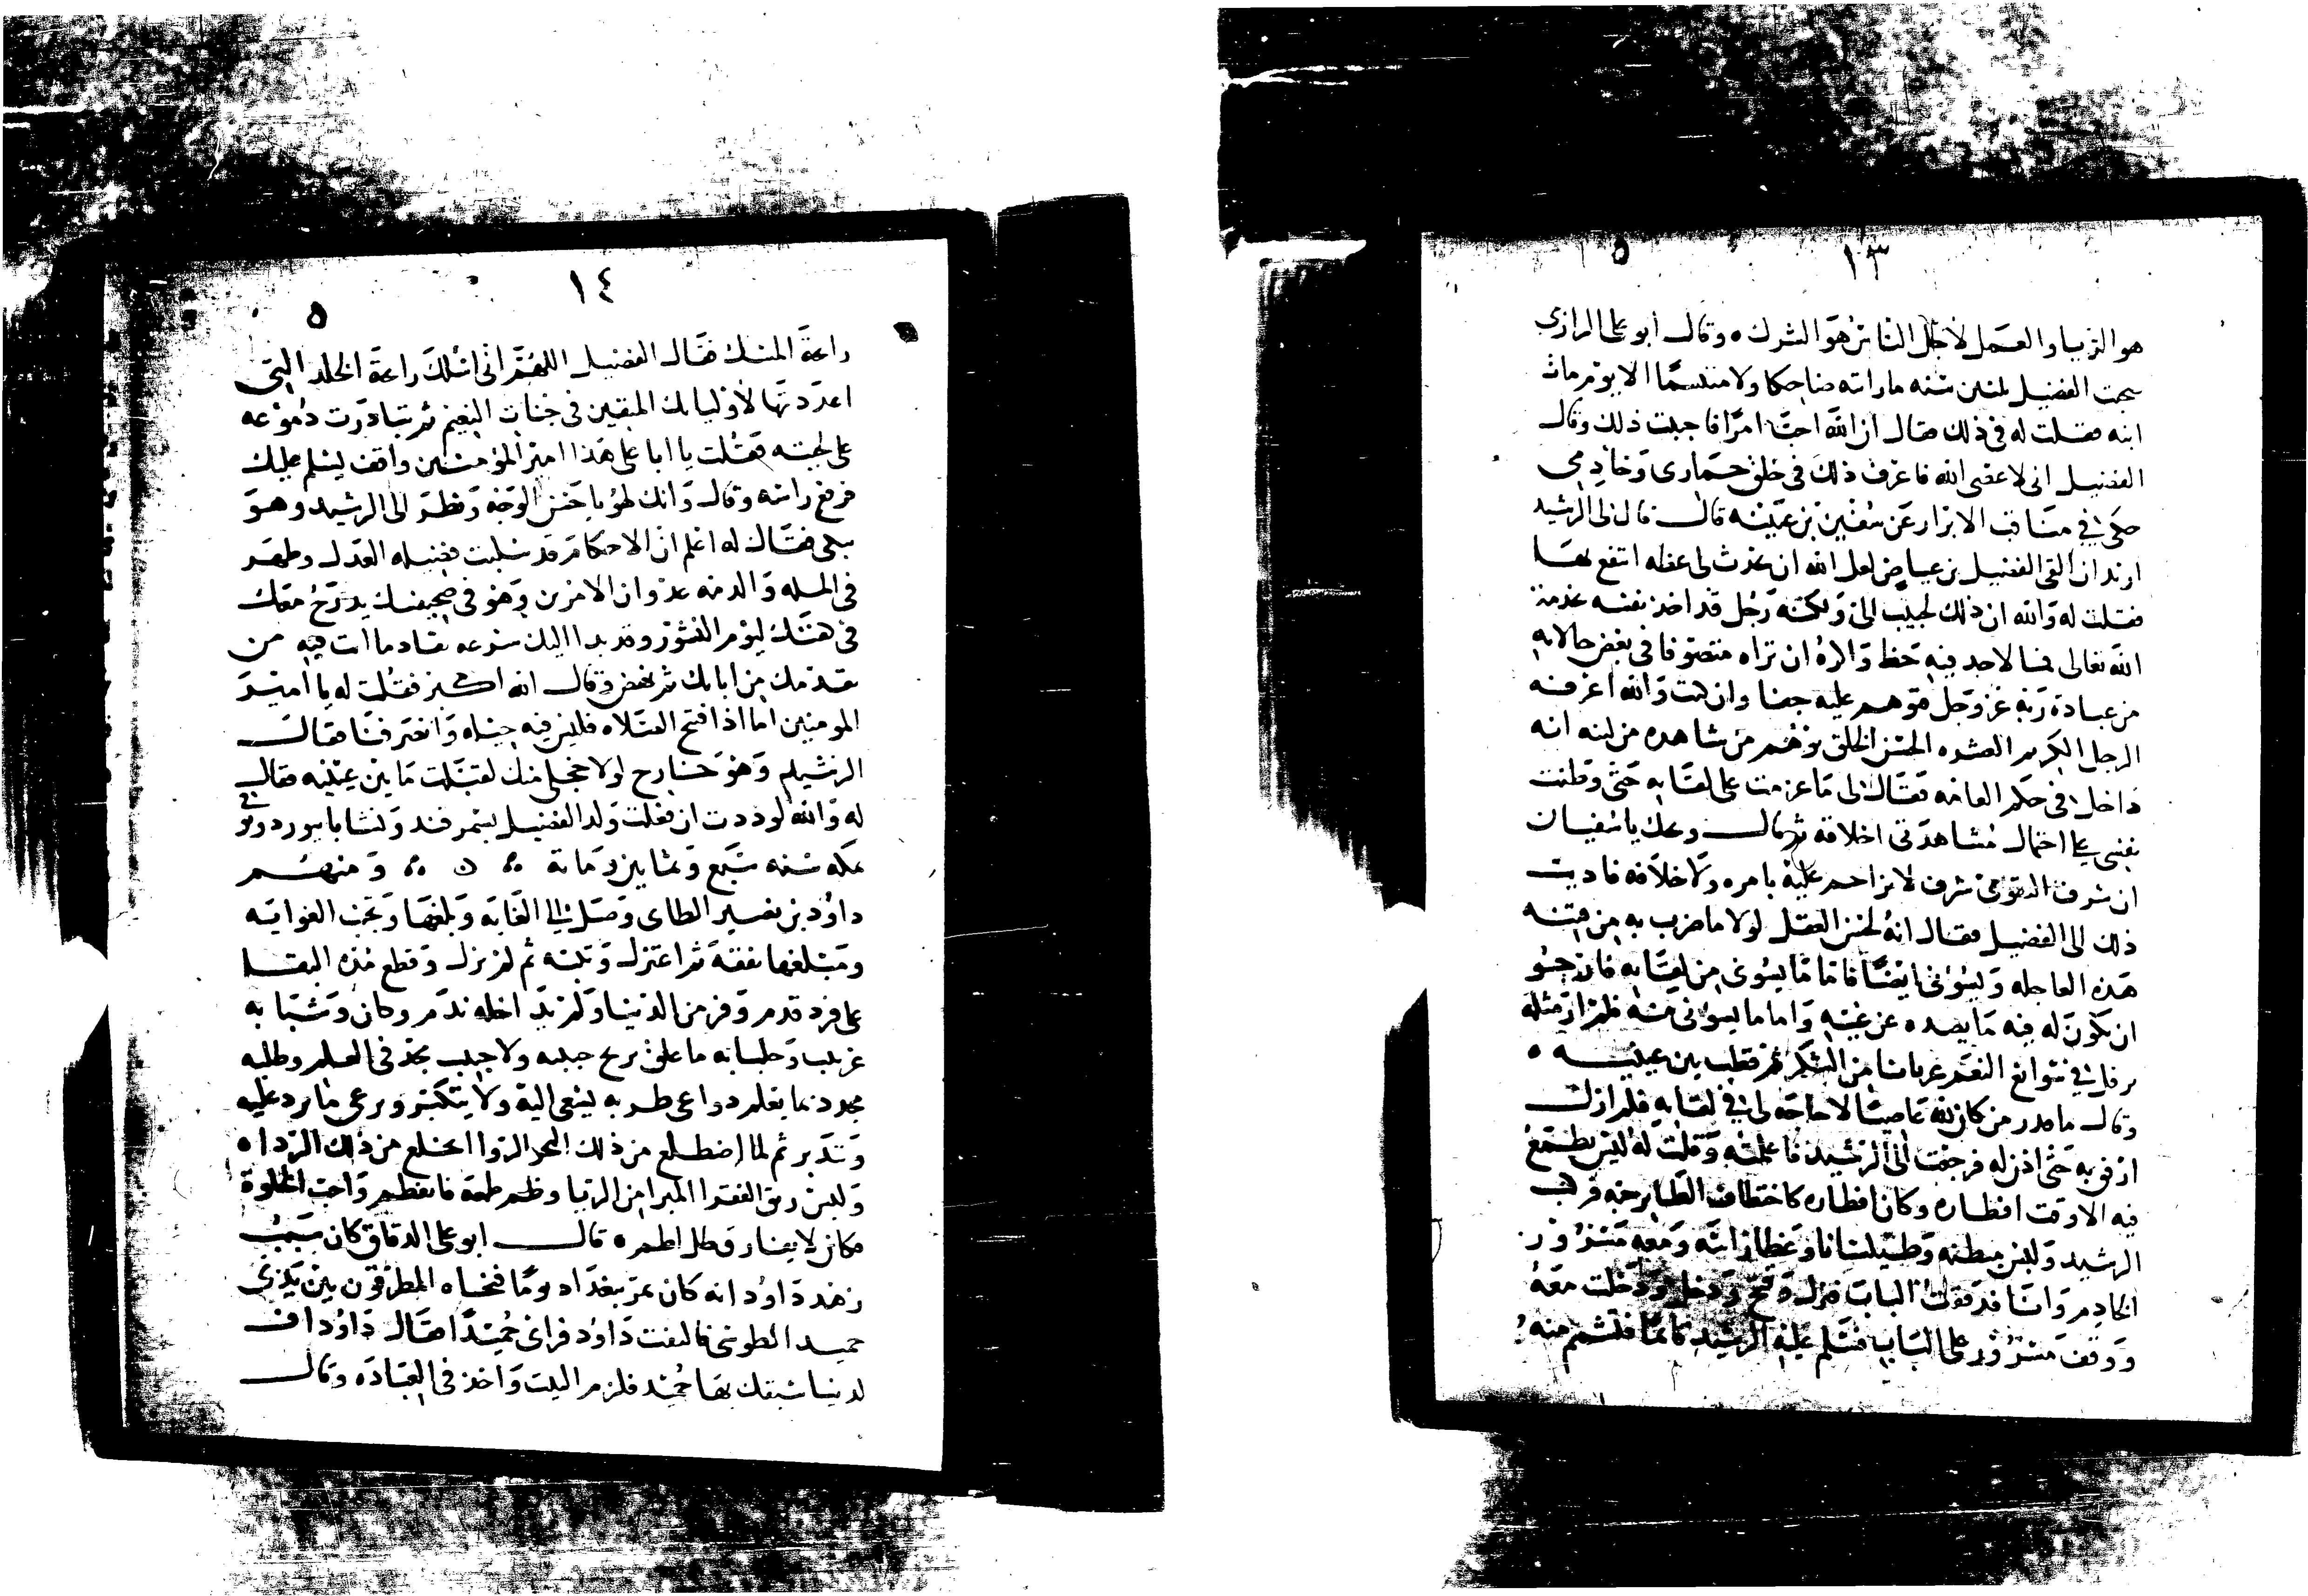 ١٣
هو الريا والعمل لأجل الناس هو الشرك ٥ وقال ابو علي الرازي
صحبت الفضيل ثلثين سنه ما راته ضاحكا ولا متبسمًا الا يوم مات
ابنه فقلت له في ذلك فقال ان الله احب امرًا فاحببت ذلك وقال
الفضيل اني لاعصي الله فاعرف ذلك في خلق حماري وخادمي
حكي في مناقب الابرار عن سفين بن عيينه قال قال لي الرشيد
اريد ان القي الفضيل بن عياض لعل الله ان يحدث لي عظه انتفع بها
فقلت له والله ان ذلك لحبيب الي ولكنه رجل قد اخذ نفسه بخدمة
الله تعالى فما لاحد فيه حظ واكره ان تراه متصوفا في بعض حالاته
من عبادة ربه عز وجل فتوهم عليه جفا وان كنت والله اعرفه
الرجل الكريم العشره الحسن الخلق يوهم من شاهده من لينه انه
داخل في حكم العامه فقال لي ما عزمت على لقايه حتى وطنت
نفسي علي احتمال مشاهدتي اخلاقه ثم قال ويحك يا سفيان
ان شرف التقوى شرف لا يزاحم عليه بامره ولا خلافه فاديت
ذلك الى الفضيل فقال انه لحسن العقل لولا ما ضرب به من فتنه
هذه العاجله ويسوني ايضًا فاما ما يسوني من لقايه فان
ان يكون له فيه ما يصده عن غيه واما ما يسوني منه فلم ار مثله
يرفل في سوابغ النعم عريانا من الشكر ثم قطب بين عينيه ٥
وقال ما من كان لله عاصيًا لا حاجه لي في لقايه فلم ازل
ارفق به حتى اذن له فرجعت الى الرشيد فاعلمته وقلت له ليس يطمع
فيه الا وقت افطاره وكان افطاره كاختطاف الطاير حبه فركب
الرشيد ولبس مبطنه وطيلسانا وغطا راسه ومعه مسرور
الخادم وانا الباب فنزل وفتح ودخل ودخلت معه
ووقف مسرور على الباب فسلم عليه الرشيد قايمًا فلشم منه
١٤
رايحة المسك فقال الفضيل اللهم اني اسلك رايحة الخلد التي
اعددتها لأوليايك المتقين في جنات النعيم ثم تبادرت دموعه
على لحيته فقلت يا ابا علي هذا امير المؤمنين واقف يسلم عليك
فرفع راسه وقال وانك لهو يا حسن الوجه ونظر الى الرشيد وهو
يبكي فقال له اعلم ان الاحكام قد سلبت فضيله العدل وظهر
في المله والذمه عدوان الامرين وهو في صحيفتك يدرج معك
في ليوم النشور وقد بدا اليك سرعه نفاد ما انت فيه من
تقدمك من ابايك ثم نهض وقال الله اكبر فقلت له يا امير
المومنين اما اذا افتتح الصلاه فليس فيه حيله وانحرفنا فقال
الرشيد وهو خارج لولا خجلي منك لقبلت ما بين عينيه فقال
له والله لوددت ان فعلت ولد الفضيل بسمرقند ونشا بابيورد وتوفي
بمكه سنه سبع وثمانين ومائة ومنهم
داود بن نصير الطاي وصل الي الغايه وبلغها وتجنب الغوايه
ومبلغها تفقه ثم اعتزل وتنبه ثم لم يزل وقطع هذه البقا
على فرد قدم وفر من الدنيا ولم يتداخله ندم وكان وشبابه
غريب وجلبابه ما علق بريح جيبه ولا جبب يجد في العلم وطلبه
ويجود بما يعلم دواعي طربه ليسعى اليه ولا يتكبر ويرعى ما يرد عليه
ويتدبر ثم لما اضطلع من ذلك البحر الروا انخلع من ذلك الرداه
ولبس زيق الفقرا المبرا من الريا وفطم طمعه فانفطم واحب الخلوة
مكان لا يفارق ٥ قال ابو على الدقاق كان سبب
زهد داود انه كان يمر ببغداد يومًا فنحاه المطرقون بين يدي
حميد الطوسي فالتفت داود فراى حميدًا فقال داود اف
لدنيا سبقك بها حميد فلزم البيت واخذ في العبادة وقال